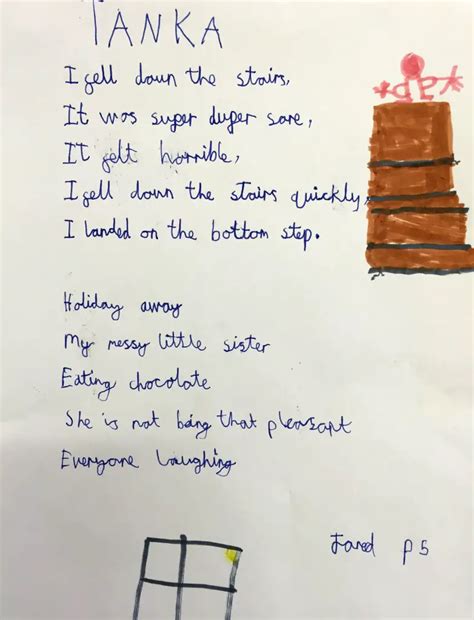 TANKA
I fell down the stairs,
It was super duper sore,
It felt horrible,
I fell down the stairs quickly,
I landed on the bottom step.
Holiday away
My messy little sister
Eating chocolate
She is not being that pleasant
Everyone laughing
Jared P5